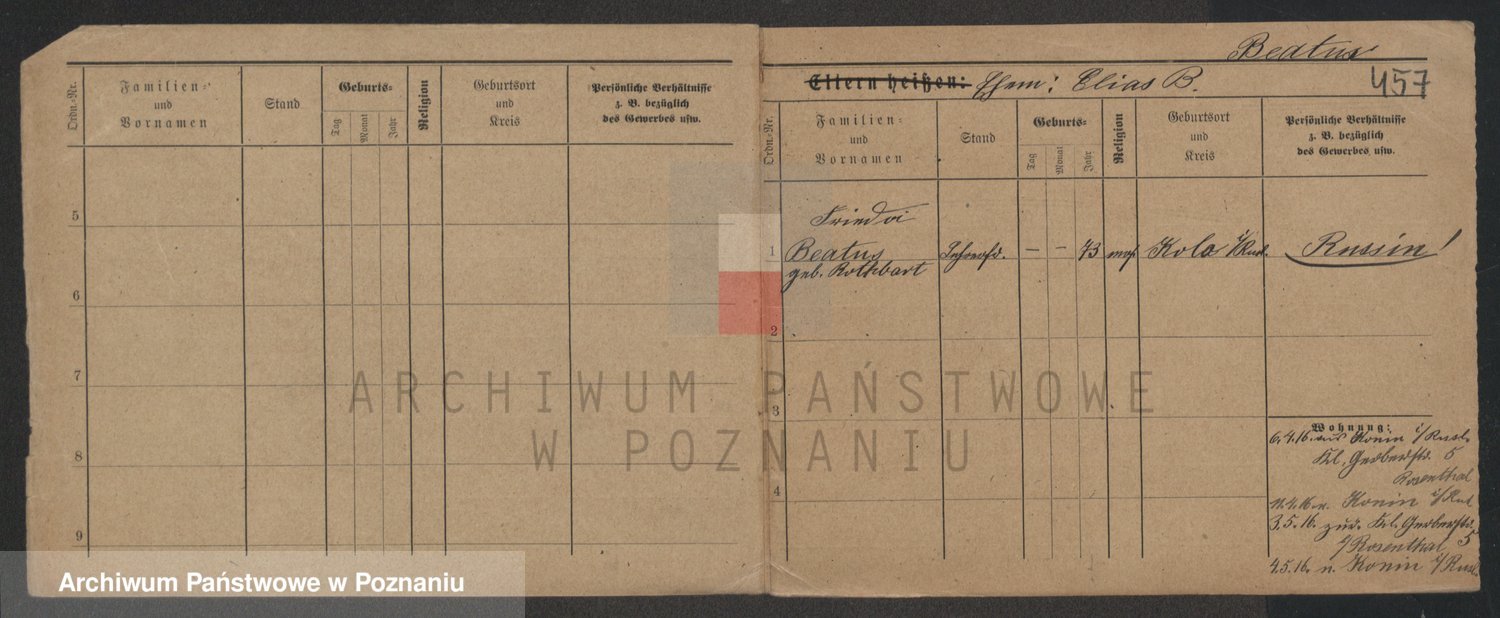 Ordn.-Nr.
Familien-
und
Vornamen
Stand
Geburts-
Tag
Monat
Jahr
Religion
Geburtsort
und
Kreis
Persönliche Verhältnisse
z. B. bezüglich
des Gewerbes usw.
5
6
7
8
9
Beatus
457
Eltern heißen: Ehem: Elias B.
Ordn.-Nr.
Familien-
und
Vornamen
Stand
Geburts-
Tag
Monat
Jahr
Religion
Geburtsort
und
Kreis
Persönliche Verhältnisse
z. B. bezüglich
des Gewerbes usw.
1
Beatus
geb. Rothbart
— — 73 mos
Kolo i/Rusl.
Russin!
2
3
4
Wohnung:
6.4.16. aus Konin i/Rusl.
Kl. Gerberstr. 5
Rosenthal
11.4.16 n. Konin i/Rusl
3.5.16. zur. Kl. Gerberstr. 5
b/Rosenthal
4.5.16. n. Konin i/Rusl.
ARCHIWUM PAŃSTWOWE
W POZNANIU
Archiwum Państwowe w Poznaniu